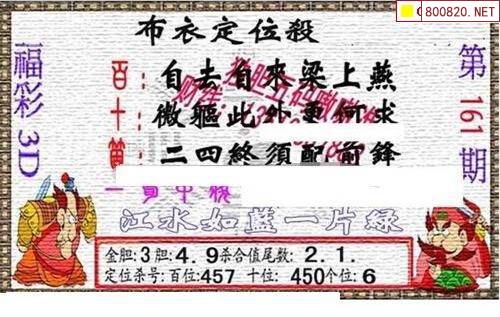 800820.NET
布衣定位殺
福彩3D
第161期
百：自去自來梁上燕
十：微軀此外更何求
二四終須配前鋒
江水如藍一片綠
金胆:3胆:4.9杀合值尾数:2.1.
定位杀号:百位:457 十位:450个位:6